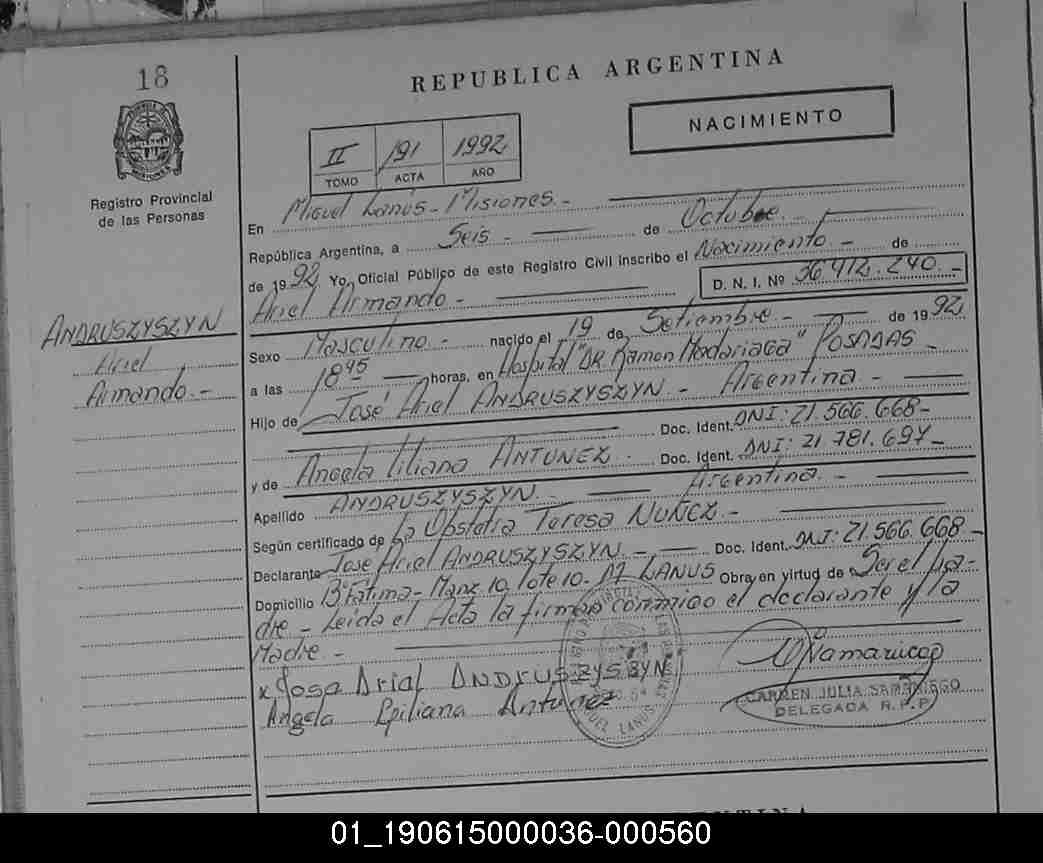 18
REPUBLICA ARGENTINA
NACIMIENTO
II 191 1992
TOMO ACTA AÑO
Registro Provincial
de las Personas
En Miguel Lanús - Misiones. -
República Argentina, a Seis - de Octubre. -
de 1992 Yo, Oficial Público de este Registro Civil inscribo el Nacimiento - de
Ariel Armando. - D. N. I. Nº 36.412.240. -
ANDRUSZYSZYN
Ariel
Armando. -
Sexo Masculino. - nacido el 19 de Setiembre. - de 1992
a las 18 45 horas, en Hospital "DR. Ramon Madariaga" POSADAS -
Hijo de José Ariel ANDRUSZYSZYN - Argentina -
Doc. Ident. DNI: 21.566.668-
y de Angela liliana ANTUNEZ. Doc. Ident. DNI: 21.781.697-
Apellido ANDRUSZYSZYN. - Argentina. -
Según certificado de la Obstetra Teresa NUÑEZ. -
Declarante José Ariel ANDRUSZYSZYN. - Doc. Ident. DNI: 21.566.668-
Domicilio Bº Fatima - Manz. 10, lote 10. - M LANUS Obra en virtud de Ser el pa-
dre - Leida el Acta la firman conmigo el declarante y la
Madre. -
x Josa Arial ANDRUSZYSZYN
Angela Lpiliana Antunez
CARMEN JULIA SAMANIEGO
DELEGADA R. P. P.
01_190615000036-000560